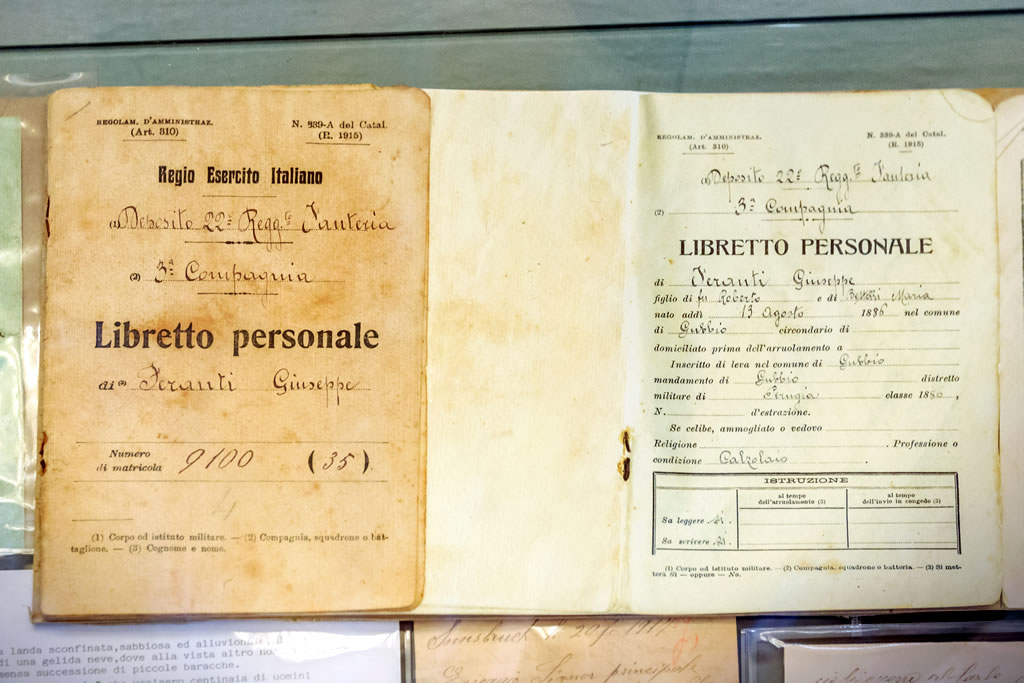 REGOLAM. D'AMMINISTRAZ.
(Art. 310)
N. 339-A del Catal.
(R. 1915)
Regio Esercito Italiano
(1) Deposito 22º Regg.to Fanteria
(2) 3ª Compagnia
Libretto personale
di (3) Feranti Giuseppe
Numero
di matricola 9100 (35)
(1) Corpo od istituto militare. — (2) Compagnia, squadrone o bat-
taglione. — (3) Cognome e nome.
REGOLAM. D'AMMINISTRAZ.
(Art. 310)
N. 339-A del Catal.
(R. 1915)
(1) Deposito 22º Regg.to Fanteria
(2) 3ª Compagnia
LIBRETTO PERSONALE
di Feranti Giuseppe
figlio di fu Roberto e di Maria
nato addì 13 Agosto 1886 nel comune
di Gubbio circondario di
domiciliato prima dell'arruolamento a
Inscritto di leva nel comune di Gubbio
mandamento di Gubbio distretto
militare di Perugia classe 1886,
N. d'estrazione.
Se celibe, ammogliato o vedovo
Religione . Professione o
condizione Calzolaio .
ISTRUZIONE
al tempo
dell'arruolamento (3)
al tempo
dell'invio in congedo (3)
Sa leggere si.
Sa scrivere si.
(1) Corpo od istituto militare. — (2) Compagnia, squadrone o batteria. — (3) Si met-
terà Sì — oppure — No.
a landa sconfinata, sabbiosa ed alluvionale,
di una gelida neve, dove alla vista altro no
sensa successione di piccole baracche.
centinaia di uomini
Innsbruck
Signor principale